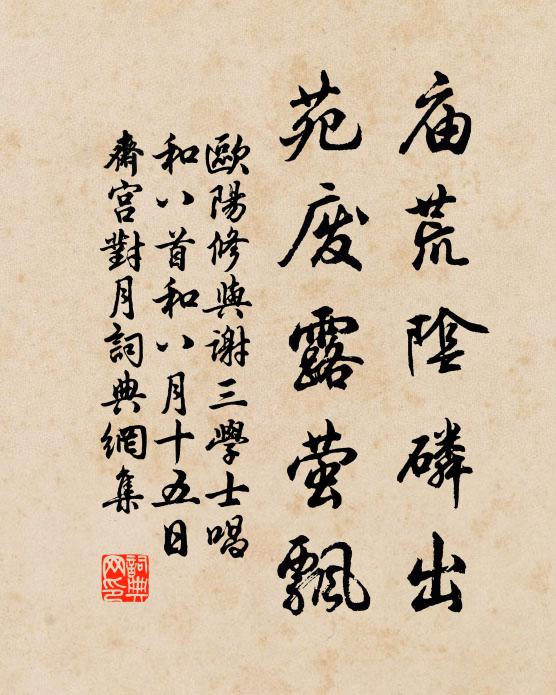 庙荒陰磷出
苑废露萤飄
歐陽修與謝三學士唱
和八首和八月十五日
齋宮對月詞典網集
詞典
网印